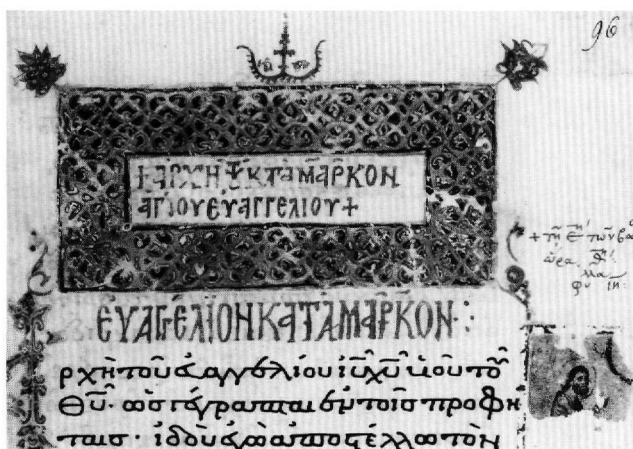 96
+ ΑΡΧΗ ΚΑΤΑ ΜΑΡΚΟΝ
ΑΓΙΟΥ ΕΥΑΓΓΕΛΙΟΥ +
ΕΥΑΓΓΕΛΙΟΝ ΚΑΤΑ ΜΑΡΚΟΝ :
ρχὴ τοῦ εὐαγγελίου ιυ χυ υἱοῦ τοῦ
θυ · ὡς γέγραπται ἐν τοῖς προφή
ταις · ἰδοὺ ἐγὼ ἀποστέλλω τὸν